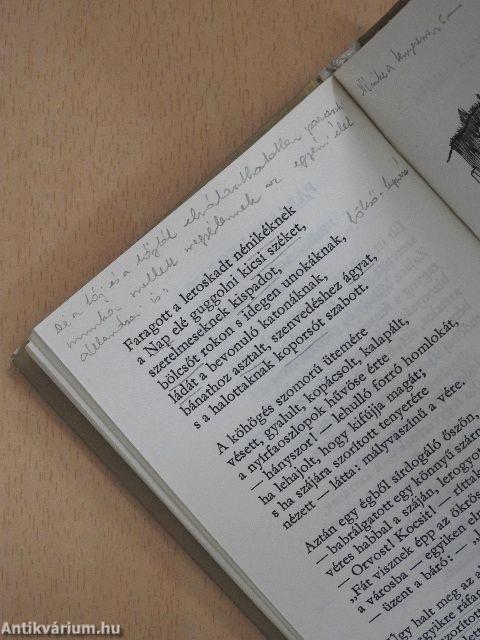 De a táj és a tájtól elválaszthatatlan paraszti
munka mellett megjelennek az egyéni élet
állomásai is;
bölcső-koporsó
Faragott a leroskadt nénikéknek
a Nap elé guggolni kicsi széket,
szerelmeseknek kispadot,
bölcsőt rokon s idegen unokáknak,
ládát a bevonuló katonáknak,
bánathoz asztalt, szenvedéshez ágyat,
s a halottaknak koporsót szabott.
A köhögés szomorú ütemére
vésett, gyalult, kopácsolt, kalapált,
a nyírfaoszlopok hűvöse érte
— hányszor! — lehulló forró homlokát,
ha lehajolt, hogy kifújja magát;
s ha szájára szorított tenyerére
nézett — látta: mályvaszínű a vére.
Aztán egy égből sírdogáló őszön,
— babrálgatott egy könnyű
véres habbal a száján,
— Orvost! Kocsit! —
„Fát visznek épp az
a városba — egyiken
— üzent a báró: —
Úgy halt meg az
Antikvárium.hu